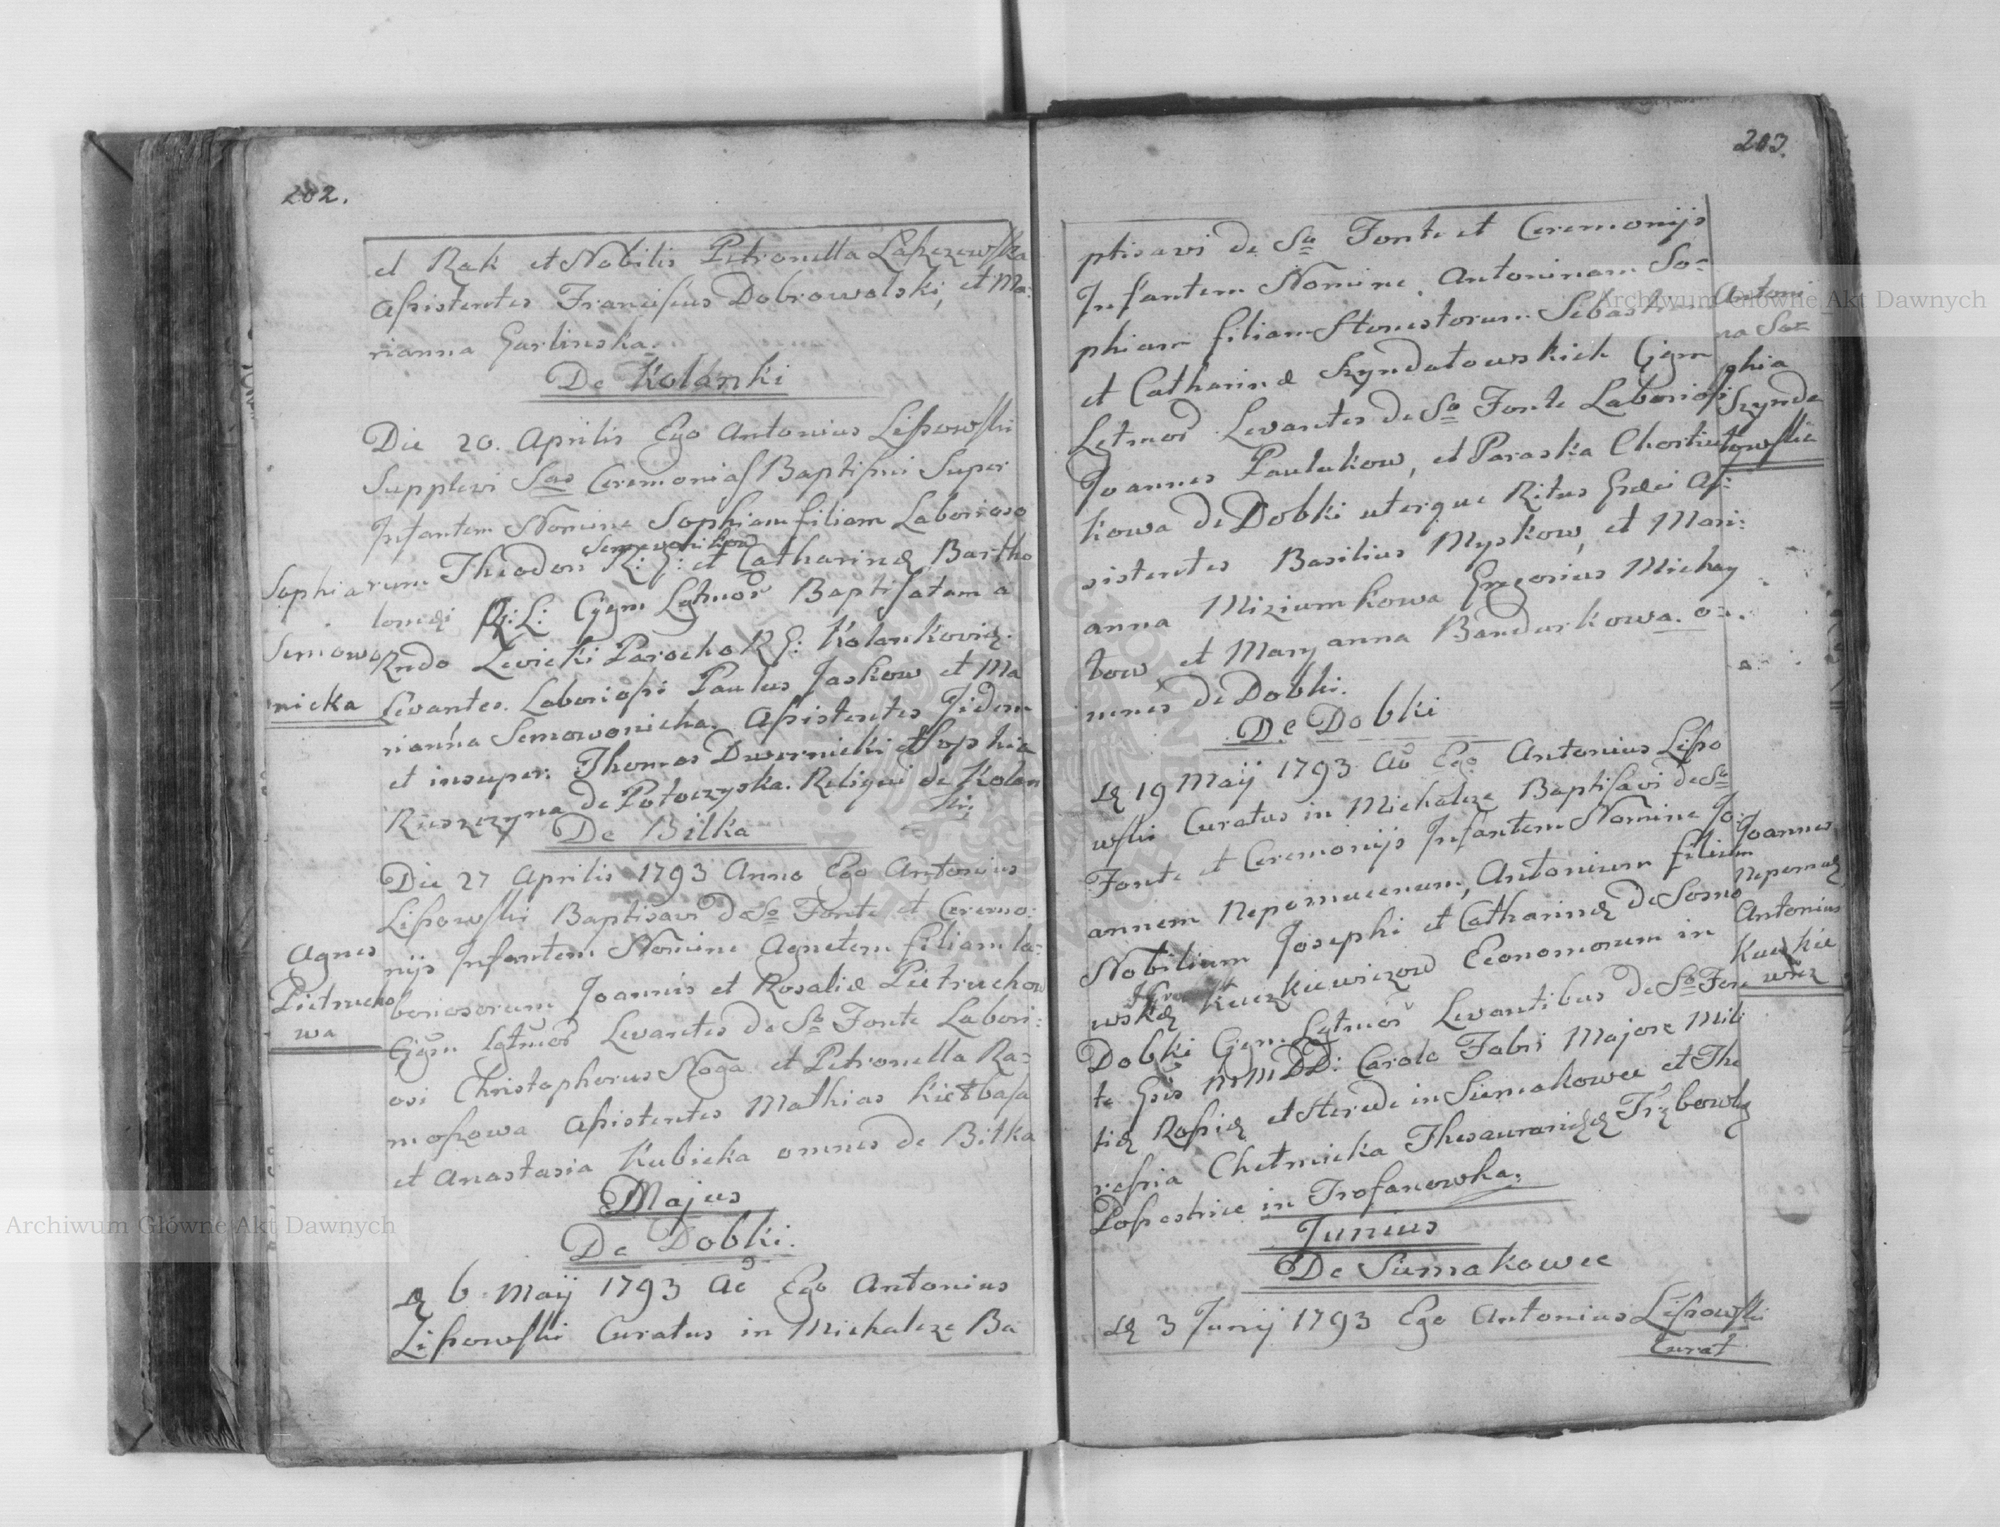 202.
et Rak et Nobilis Petronella Laszczewska
Assistentes Franciscus Dobrowolski, et Ma:
rianna Garlinska.
De Kolanki
Die 20. Aprilis Ego Antonius Lissowski
Supplevi Sas Ceremonias Baptismi Super
Infantem Nomine Sophiam filiam Laborioso
rum Theodori R: G: et Catharinæ Bartho
lomæi R: L: Cjgm Lgtmor Baptisatam a
Rndo Levicki Parocho R G: Kolankovien.
Levantes. Laboriosi Paulus Jaskow et Ma
rianna Semowonicka. Assistentes Iidem
et insuper. Thomas Dwernicki et Sophia
Ruszczyna de Potoczyska. Reliqui de Kolan
ki
Sophia
Semowo
nicka
De Bilka
Die 27 Aprilis 1793 Anno Ego Antonius
Lissowski Baptisavi De So Fonte et Ceremo:
nijs Infantem Nomine Agnetem filiam La:
boriosorum Joannis et Rosaliæ Pietruchow
Cjgm lgtmor Levantes de So Fonte Labori:
osi Christophorus Noga et Petronella Ra=
moszowa Assistentes Mathias Kiełbasa
et Anastasia Kubicka omnes de Bilka
Agnes
Pietrucho
wa
Majus
De Dobki.
Dę 6 Maij 1793 Ao Ego Antonius
Lissowski Curatus in Michalcze Ba
203.
ptisavi de So Fonte et Ceremonijs
Infantem Nomine Antoninam So=
phiam filiam Honestorum Sebastiani
et Catharinæ Szyndatowskich Cjgm
Lgtmor Levantes de So Fonte Laboriosi
Joannes Paulukow, et Paraska
kowa de Dobki uterque Ritus Græci As:
sistentes Basilius Myskow, et Mari:
anna Miziumkowa Gregorius Michay
low et Maryanna Bandurkowa. o=
mnes de Dobki.
Antoni
na So=
phia
Szynda
towska
De Dobki
Dę 19 Maij 1793 Ao Ego Antonius Lisso
wski Curatus in Michalcze Baptisavi de So
Fonte et Ceremonijs Infantem Nomine Jo:
annem Nepomucenum, Antonium filium
Nobilium Josephi et Catharinæ de Sosno
wskę Kuczkiewiczow Economorum in
Dobki Cjgm Lgtmor Levantibus de So Fon
te Gsis MM DD: Carolo Fabri Majore Mili
tiæ Rossiæ et Hærede in Siemakowce et The
ressia Chełmicka Thesaurariczę Trębowlę
Possestrice in Trofanowka.
Joannes
Nepomuc
Antonius
Kuczkie
wicz
Junius
De Siemakowce
Dę 3 Junij 1793 Ego Antonius Lissowski
Curat
Archiwum Główne Akt Dawnych
Archiwum Główne Akt Dawnych